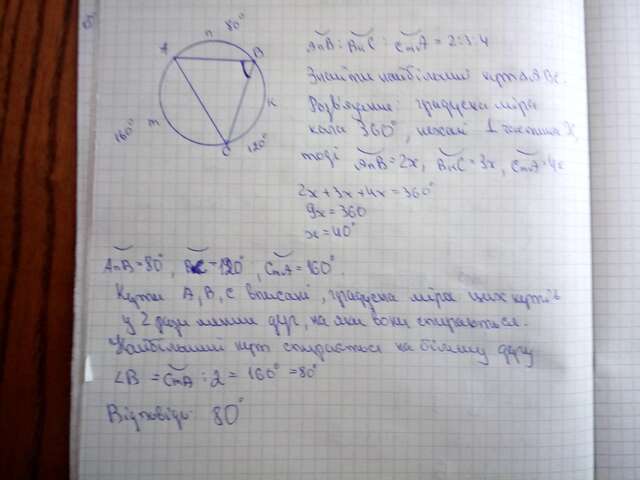 n 80°
A
B
m
к
160°
C
120°
AnB : BкC : CmA = 2:3:4
Знайти найбільший кут △ABC.
Розв'язання: градусна міра
кола 360°, нехай 1 частина x,
тоді AnB = 2x, BкC = 3x, CmA = 4x
2x + 3x + 4x = 360°
9x = 360
x = 40°
AnB = 80°, BC = 120°, CmA = 160°.
Кути A, B, C вписані, градусна міра цих кутів
у 2 рази менша дуг, на які вони спираються.
Найбільший кут спирається на більшу дугу
∠B = CmA : 2 = 160° = 80°
Відповідь: 80°